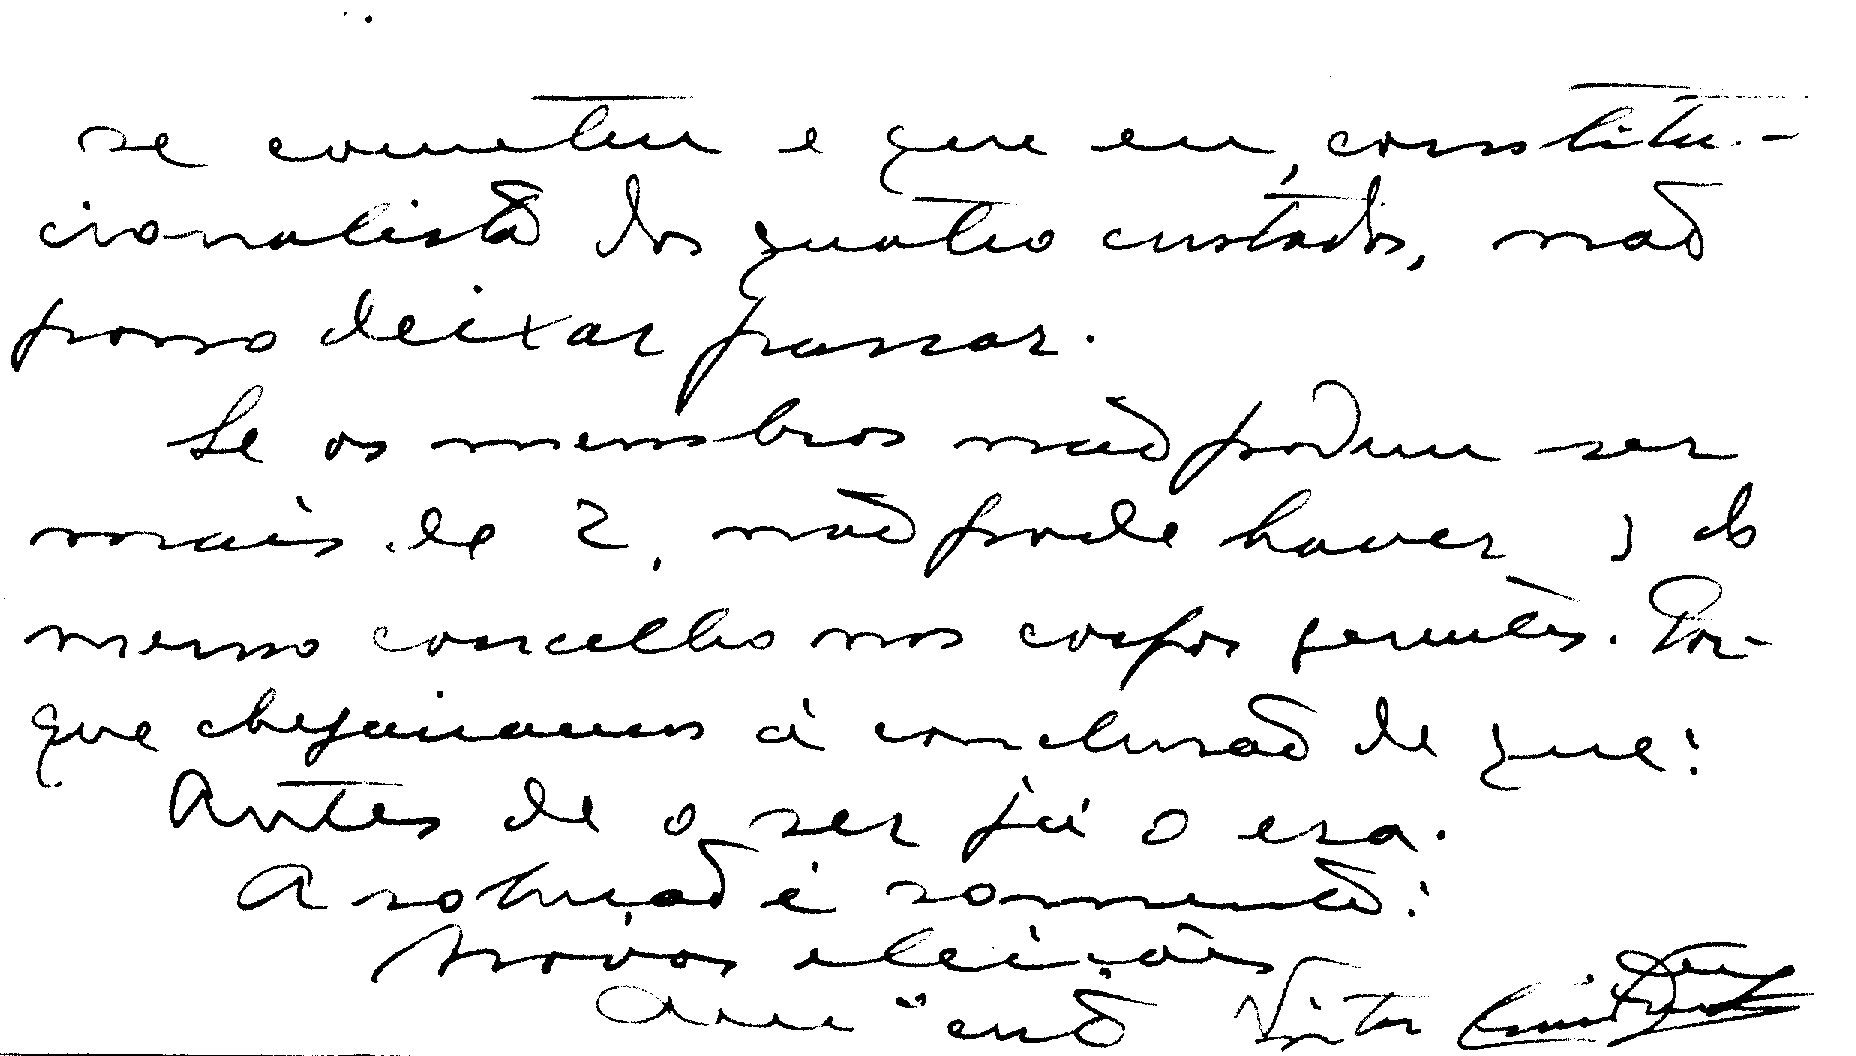 se cometeu e que eu, constitu-
cionalista dos quatro costados, não
posso deixar passar.
Se os membros não podem ser
mais de 2, não pode haver 3 do
mesmo concelho nos corpos gerentes. Por-
que chegariamos à conclusão de que:
Antes de o ser já o era.
A solução é somente:
Novas eleições
Victor